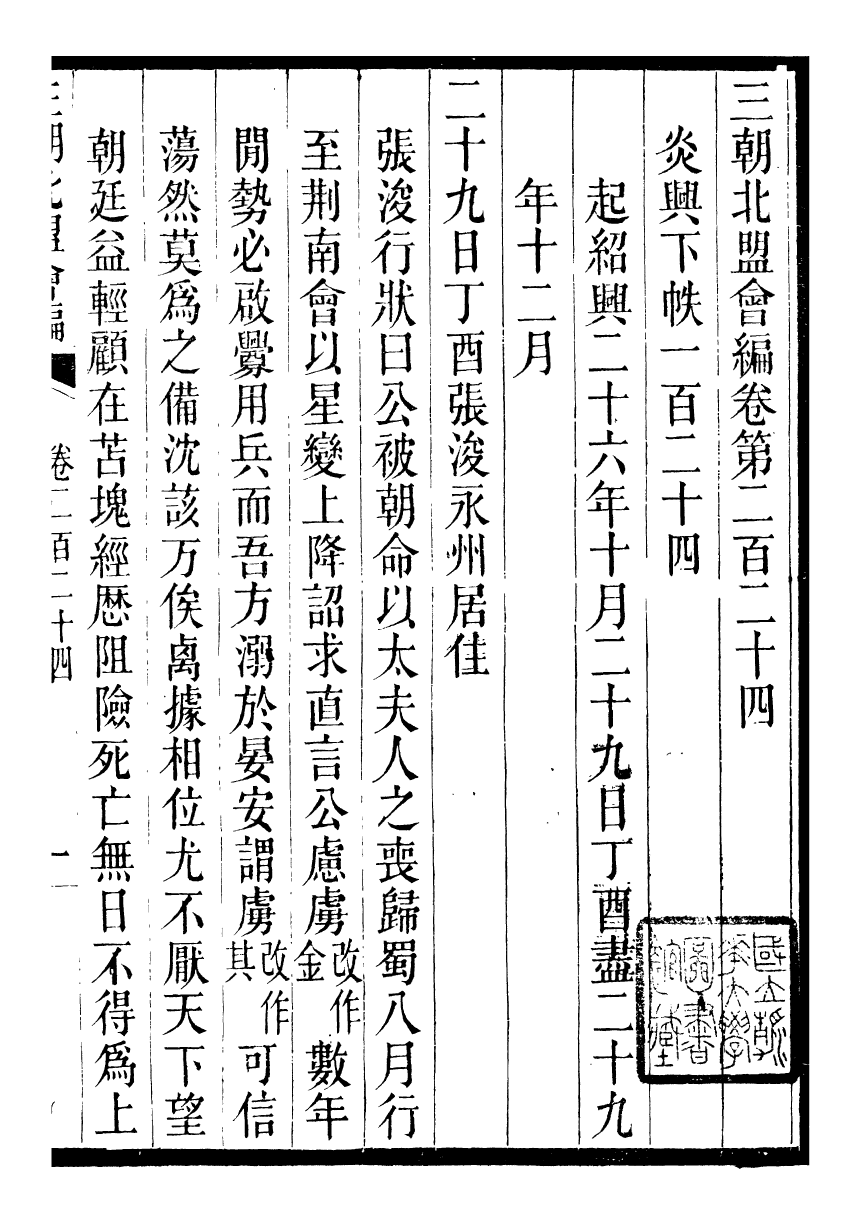 三朝北盟會編卷第二百二十四
炎興下帙一百二十四
起紹興二十六年十月二十九日丁酉盡二十九
年十二月
二十九日丁酉張浚永州居住
張浚行狀曰公被朝命以太夫人之喪歸蜀八月行
至荆南會以星變上降詔求直言公慮虜改作金數年
閒勢必啟釁用兵而吾方溺於晏安謂虜改作其可信
蕩然莫爲之備沈該万俟卨據相位尤不厭天下望
朝廷益輕顧在苫塊經歷阻險死亡無日不得爲上
三朝北盟會編 卷二百二十四 一